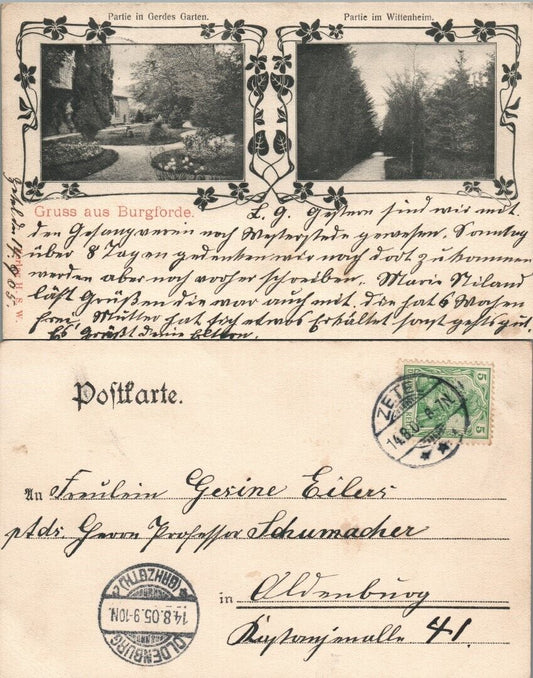 Partie in Gerdes Garten.
Partie im Wittenheim.
Gruss aus Burgforde.
L. G. Gestern sind wir mit
den Gesangverein nach Westerstede gewesen. Sonntag
über 8 Tagen gedenken wir nach dort zu kommen
werden aber noch vorher schreiben. Marie Niland
läßt Grüßen die war auch mit, die hat 6 Wochen
frei. Mutter hat sich etwas Erkältet sonst gehts gut.
Es Grüßt deine Eltern.
Postkarte.
ZETEL
14.8.0 8-7N.
5
An Freulein Gesine Eilers
ptds. Herrn Professor Schumacher
in Oldenburg
Kastanjenalle 41.
OLDENBURG
14.8.05.9-10N.
(GRHZGTH.)